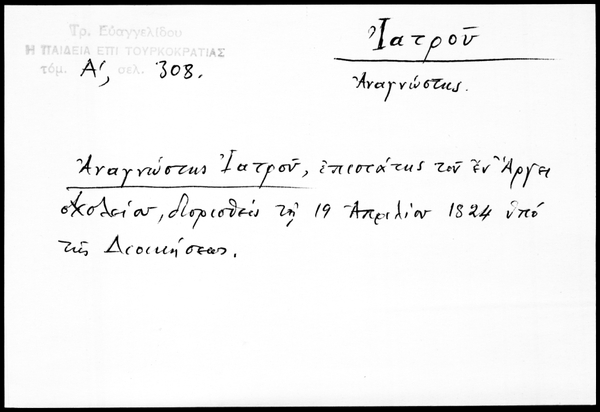 Τρ. Εὐαγγελίδου
Η ΠΑΙΔΕΙΑ ΕΠΙ ΤΟΥΡΚΟΚΡΑΤΙΑΣ
τόμ. Α', σελ. 308.
Ἰατροῦ
Ἀναγνώστης.
Ἀναγνώστης Ἰατροῦ, ἐπιστάτης τοῦ ἐν Ἄργει
σχολείου, διορισθεὶς τῇ 19 Ἀπριλίου 1824 ὑπὸ
τῆς Διοικήσεως.